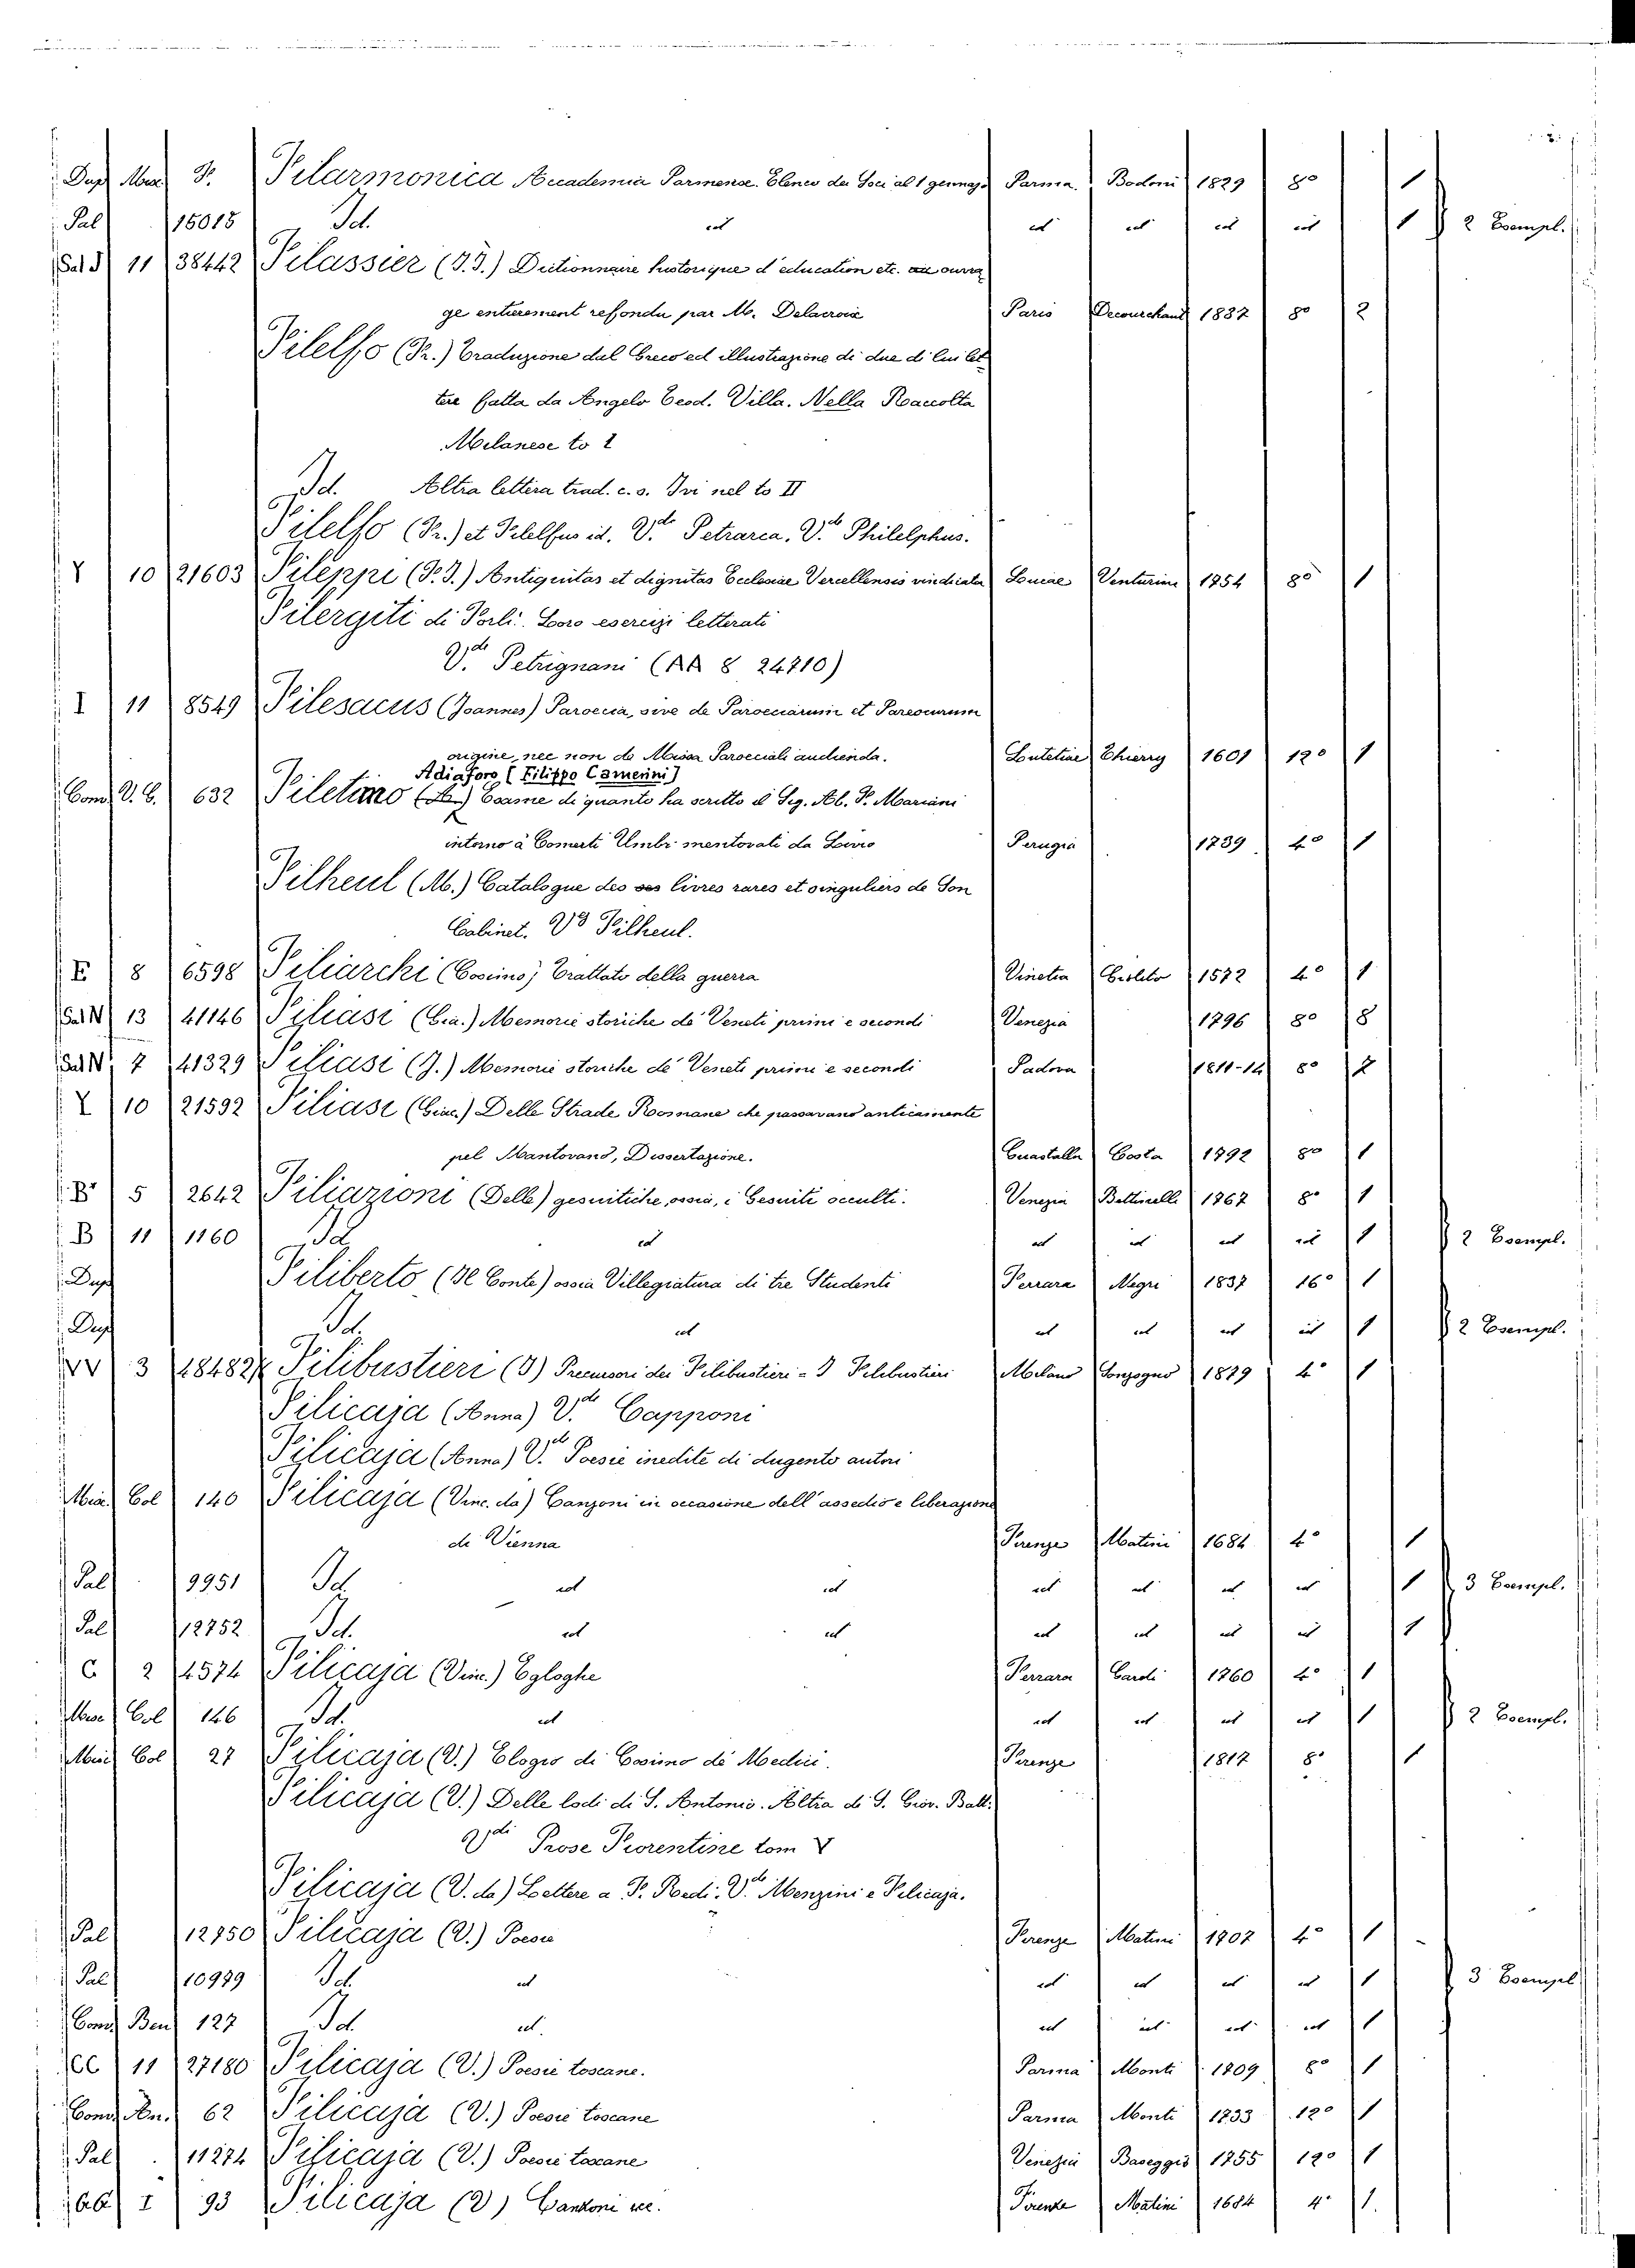 Dup Misc F. Filarmonica Accademia Parmense. Elenco dei Soci al 1 gennajo Parma Bodoni 1829 8o 1
Pal 15015 Id. id id id id id 1 2 Esempl.
Sal 11 38442 Filassier (J.J.) Dictionnaire historique d'education etc.
ge entierement refondu par M. Delacroix Paris Decourchant 1837 8o 2
Filelfo (Fr.) Traduzione dal Greco ed illustrazione di due di lui let
tere fatta da Angelo Teod. Villa. Nella Raccolta
Milanese to 1
Id. Altra lettera trad. c. s. Ivi nel to II
Filelfo (Fr.) et Filelfus id. Vdi Petrarca. Vdi Philelphus.
Y 10 21603 Fileppi (P.J.) Antiquitas et dignitas Ecclesiae Vercellensis vindicata Venturini 1754 8o 1
Filergiti di Forlì. Loro esercizi letterati
Vdi Petrignani (AA 8 24710)
I 11 8549 Filesacus (Joannes) Paroecia, sive de Paroeciarum et
origine, nec non de Missa Paroeciali audienda. Lutetiae Thierry 1601 12o 1
Adiaforo (Filippo Camerini)
Com U. C. 632 Filetimo Esame di quanto ha scritto il Sig. Ab. F. Mariani
intorno a Comerti Umbri mentovati da Livio Perugia 1739 4o 1
Filheul (M.) Catalogue des ses livres rares et singuliers de Son
Cabinet. Filheul.
E 8 6598 Filiarchi (Cosimo) Trattato della guerra Vinetia Giolito 1572 4o 1
Sal 13 41146 Filiasi (Gia.) Memorie storiche de' Veneti primi e secondi Venezia 1796 8o 8
Sal 7 41329 Filiasi (J.) Memorie storiche de' Veneti primi e secondi Padova 1811-14 8o 7
Y 10 21592 Filiasi (Giac.) Delle Strade Romane che passavano anticamente
pel Mantovano, Dissertazione. Guastalla Costa 1792 8o 1
5 2642 Filiazioni (Delle) gesuitiche, ossia, i Gesuiti occulti. Venezia Bettinelli 1767 8o 1
B 11 1160 Id id id id id id 1 2 Esempl.
Dup Filiberto (Il Conte) ossia Villegiatura di tre Studenti Ferrara Negri 1837 16o 1
Dup Id. id id id id id 1 2 Esempl.
VV 3 Filibustieri (I) Precursori dei Filibustieri - I Filibustieri Milano Sonzogno 1879 4o 1
Filicaja (Anna) Vdi Capponi
Filicaja (Anna) Vdi Poesie inedite di dugento autori
Misc Col 140 Filicaja (Vinc. da) Canzoni in occasione dell'assedio e liberazione
di Vienna Firenze Matini 1684 4o 1
Pal 9951 Id. id id id id id id 1 3 Esempl.
Pal 12752 Id. id id id id id id 1
C 2 4574 Filicaja (Vinc.) Egloghe Ferrara Garoli 1760 4o 1
Misc Col 146 Id. id id id id id 1 2 Esempl.
Misc Col 27 Filicaja (V.) Elogio di Cosimo de' Medici. Firenze 1817 8o 1
Filicaja (V.) Delle lodi di S. Antonio. Altra di S. Giov. Batt.
Vdi Prose Fiorentine tom V
Filicaja (V. da) Lettere a F. Redi. Vdi Menzini e Filicaja.
Pal 12750 Filicaja (V.) Poesie Firenze Matini 1707 4o 1
Pal 10979 Id. id id id id id 1 3 Esempl
Com Ben 127 Id. id. id id id id 1
CC 11 27180 Filicaja (V.) Poesie toscane. Parma Monti 1709 8o 1
Com An. 62 Filicaja (V.) Poesie toscane Parma Monti 1733 12o 1
Pal 11274 Filicaja (V.) Poesie toscane Venezia Baseggio 1755 12o 1
I 93 Filicaja (V) Canzoni Firenze Matini 1684 4o 1.